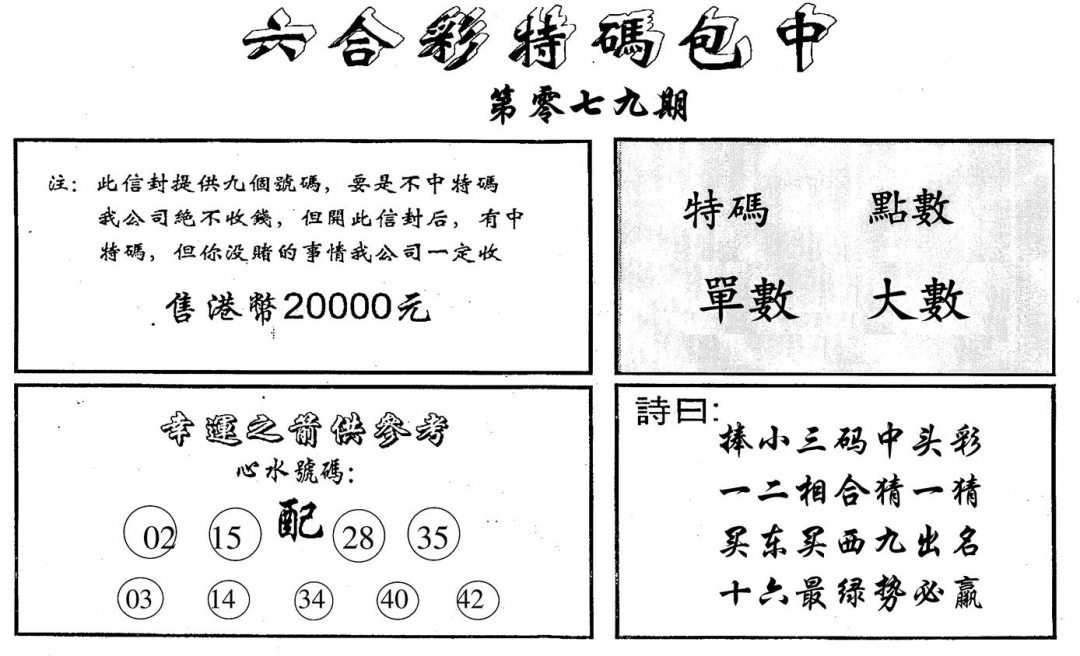 六合彩特碼包中
第零七九期
注：此信封提供九個號碼，要是不中特碼
我公司絶不收錢，但開此信封后，有中
特碼，但你没賭的事情我公司一定收
售港幣20000元
特碼 點數
單數 大數
幸運之箭供參考
心水號碼：
02 15 配 28 35
03 14 34 40 42
詩曰：
捧小三码中头彩
一二相合猜一猜
买东买西九出名
十六最绿势必赢